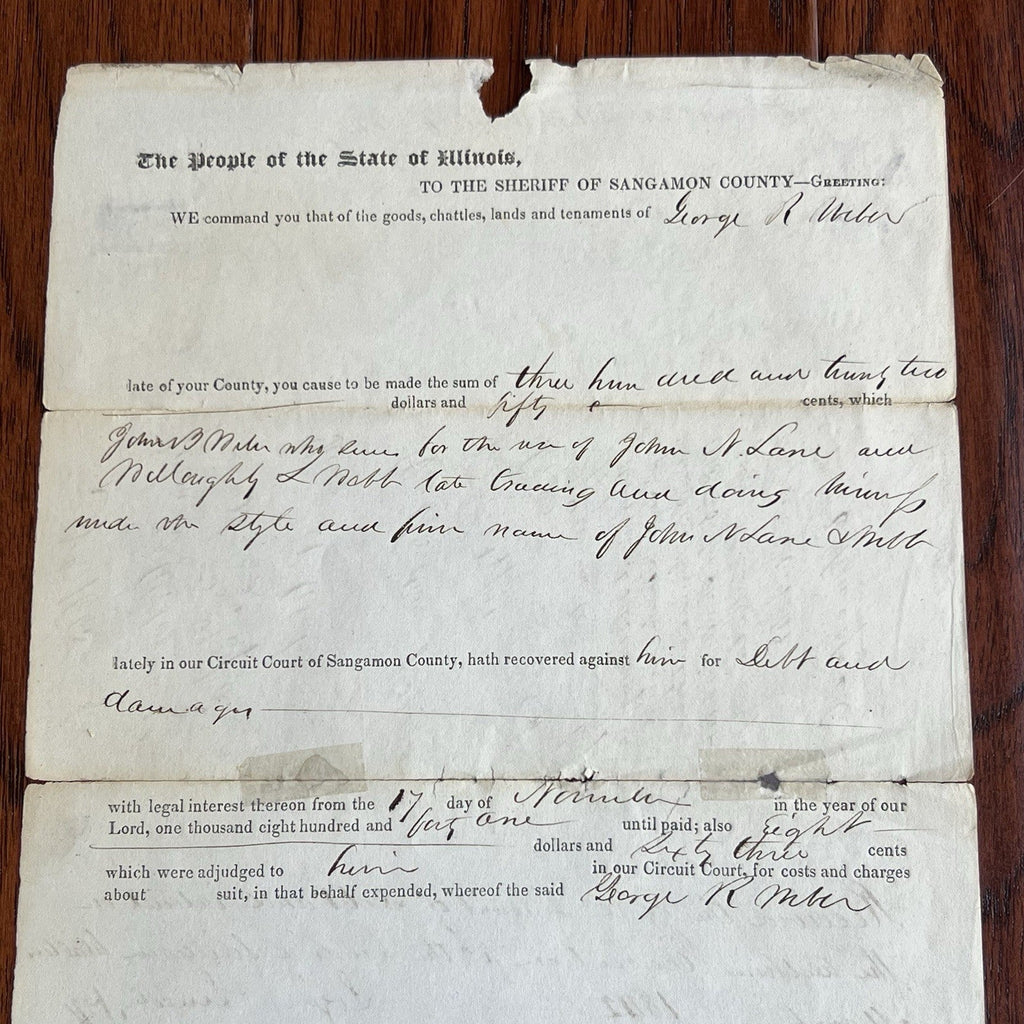 The People of the State of Illinois,
TO THE SHERIFF OF SANGAMON COUNTY—GREETING:
WE command you that of the goods, chattles, lands and tenaments of George R Weber
late of your County, you cause to be made the sum of three hundred and twenty two
dollars and fifty cents, which
John B Weber who sues for the use of John N. Lane and
Willoughby L Webb late trading and doing business
under the style and firm name of John N Lane & Webb
lately in our Circuit Court of Sangamon County, hath recovered against him for Debt and
damages
with legal interest thereon from the 17 day of November in the year of our
Lord, one thousand eight hundred and forty one until paid; also Eight
dollars and Sixty three cents
which were adjudged to him in our Circuit Court, for costs and charges
about suit, in that behalf expended, whereof the said George R Weber